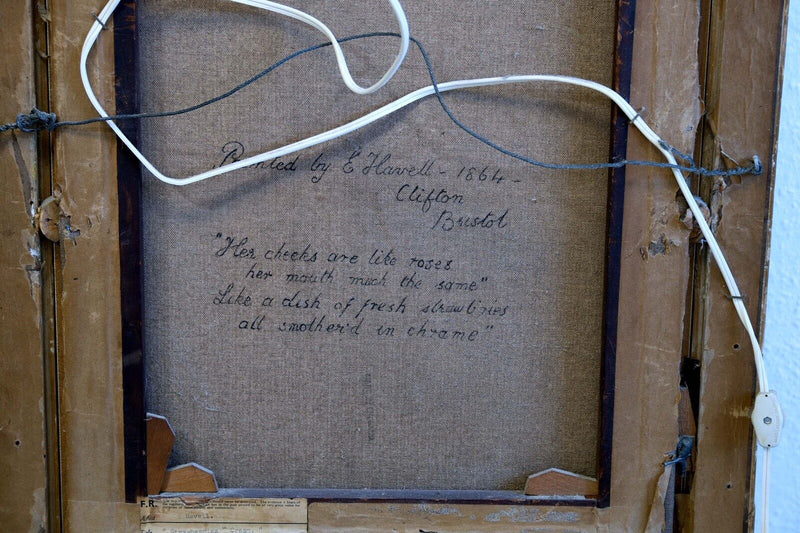 Painted by E Havell - 1864 -
Clifton
Bristol
"Her cheeks are like roses
her mouth much the same"
Like a dish of fresh strawb'ries
all smother'd in chrame"
F.R.